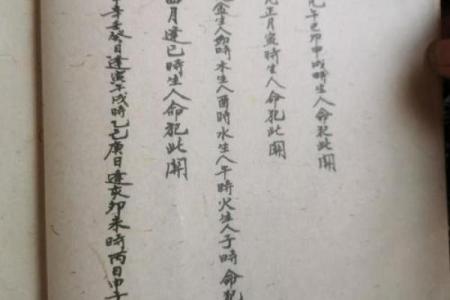 元午巳卯申戌時生人命犯此關
元正月寅時生人命犯此關
金生人卯時木生人酉時水生人午時火生人子時命犯
四月逢巳時生人命犯此關
辛壬癸日逢寅午戌時乙己庚日逢亥卯未時丙日申子